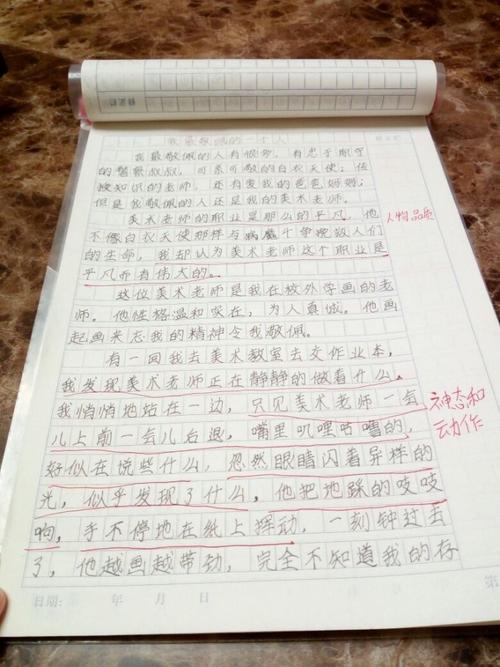 我最敬佩的一个人
我最敬佩的人有很多，有忠于职守
的警察叔叔，可亲可敬的白衣天使；传
授知识的老师，还有爱我的爸爸妈妈；
但是我敬佩的人还是我的美术老师。
美术老师的职业是那么的平凡，他
不像白衣天使那样与病魔斗争挽救人们
的生命，我却认为美术老师这个职业是
平凡而有伟大的。
人物品质
这位美术老师是我在校外学画的老
师。他性格温和实在，为人真诚。他画
起画来忘我的精神令我敬佩。
有一回我去美术教室去交作业本，
我发现美术老师正在静静的做着什么。
我悄悄地站在一边，只见美术老师一会
儿上前一会儿后退，嘴里叽哩咕噜的，
好似在说些什么，忽然眼睛闪着异样的
光，似乎发现了什么，他把地踩的吱吱
响，手不停地在纸上挥动，一刻钟过去
了，他越画越带劲，完全不知道我的存
神态和
动作
日期： 年 月 日
第